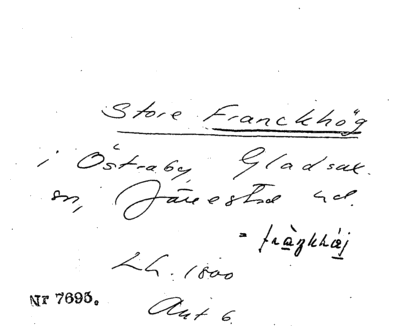 Store Franckhög
i Östraby, Gladsax
sn, Järrestad hd.
= fràŋkhåj
LH. 1800
Akt 6.
Nr 7695.